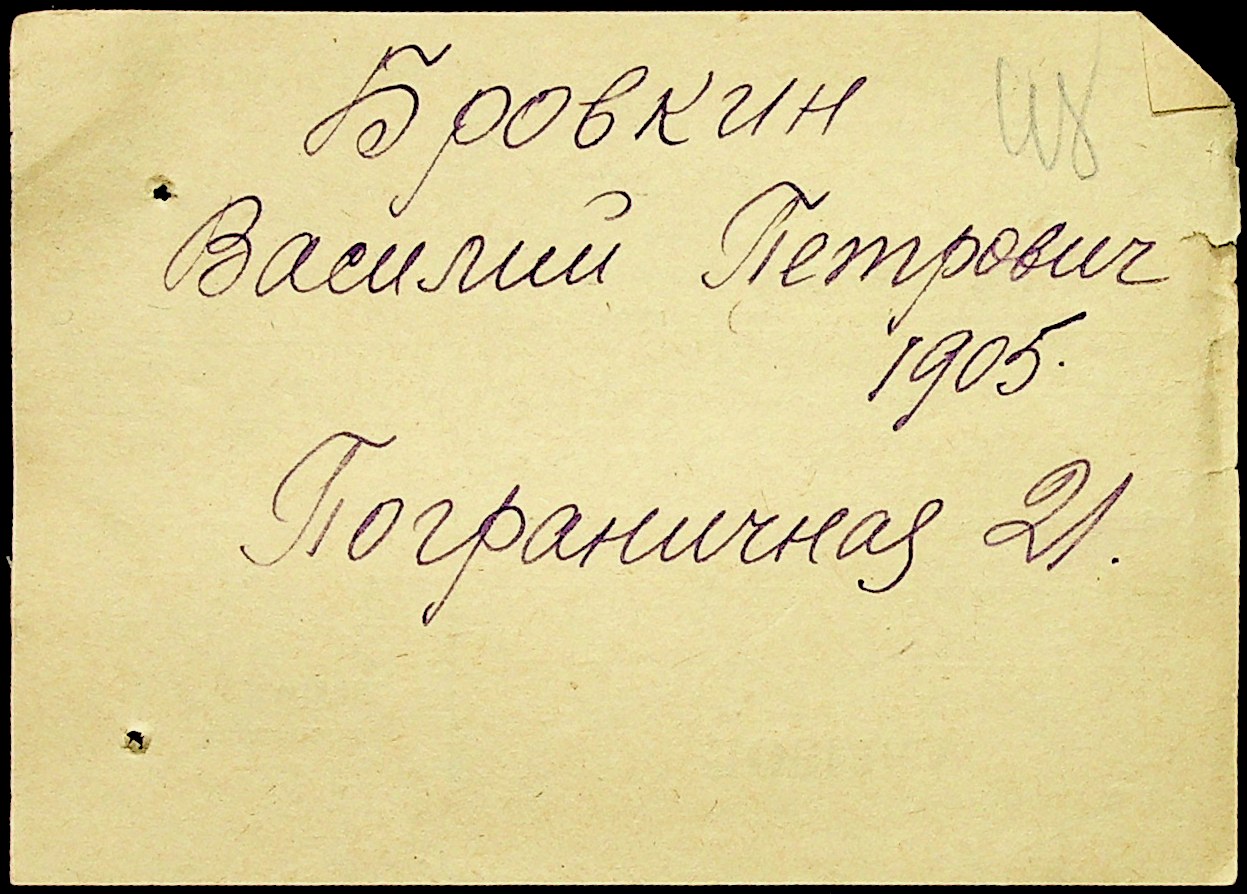 Бровкин
Василий Петрович
1905.
Пограничная 21.